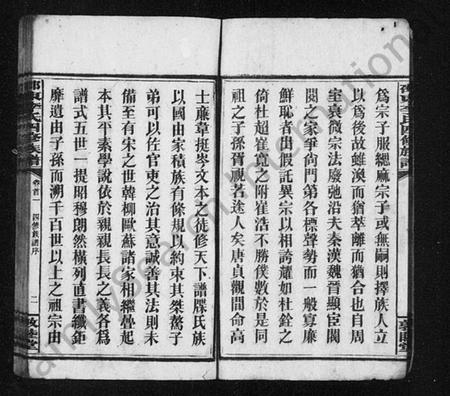 為宗子服緦麻宗子或無嗣則擇族人立
以為後故雖渙而猶萃離而猶合也自周
室衰微宗法廢弛洎夫秦漢魏晉顯臣閥
閱之家爭尚門第各標聲勢而一般寡廉
鮮恥者出假託異宗以相誇耀如杜銓之
倚杜超崔㥄之附崔浩不勝僕數於是同
祖之子孫胥視若途人矣唐貞觀間命高
士廉韋挺岑文本之徒修天下譜牒氏族
以國由家積族有條規以約束其桀驁子
弟可以佐官吏之治其意誠善其法則未
備至有宋之世韓柳歐蘇諸家相繼疊起
本其平素學說依於親親長長之義各為
譜式五世一提昭穆朗然橫列直書纖鉅
靡遺由子孫而溯千百世以上之祖宗由
卷首一
四修族譜序
二
敦睦堂
familysearch international